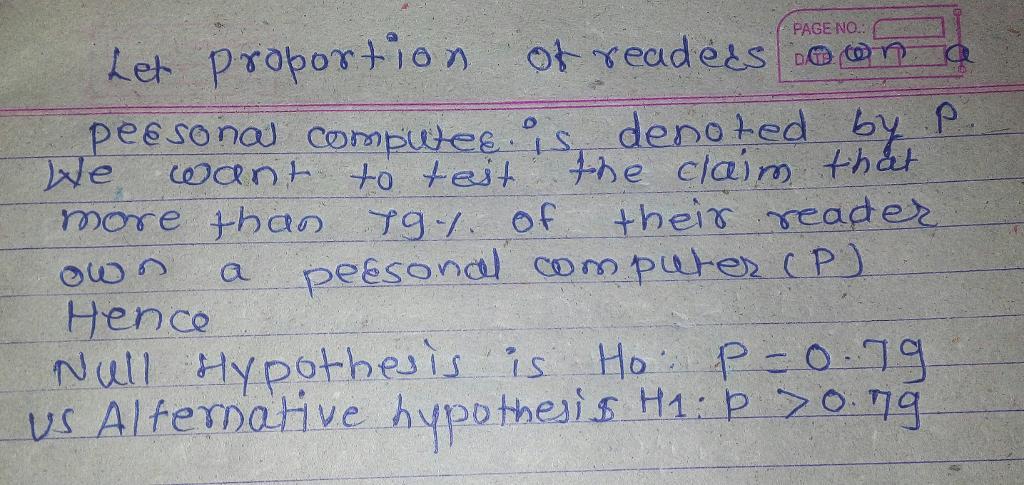 PAGE NO.:
DATE
Let proportion of readers own a
personal computer. is denoted by P.
We want to test the claim that
more than 79%. of their reader
own a personal computer (P)
Hence
Null Hypothesis is H0: P = 0.79
vs Alternative hypothesis H1: p > 0.79